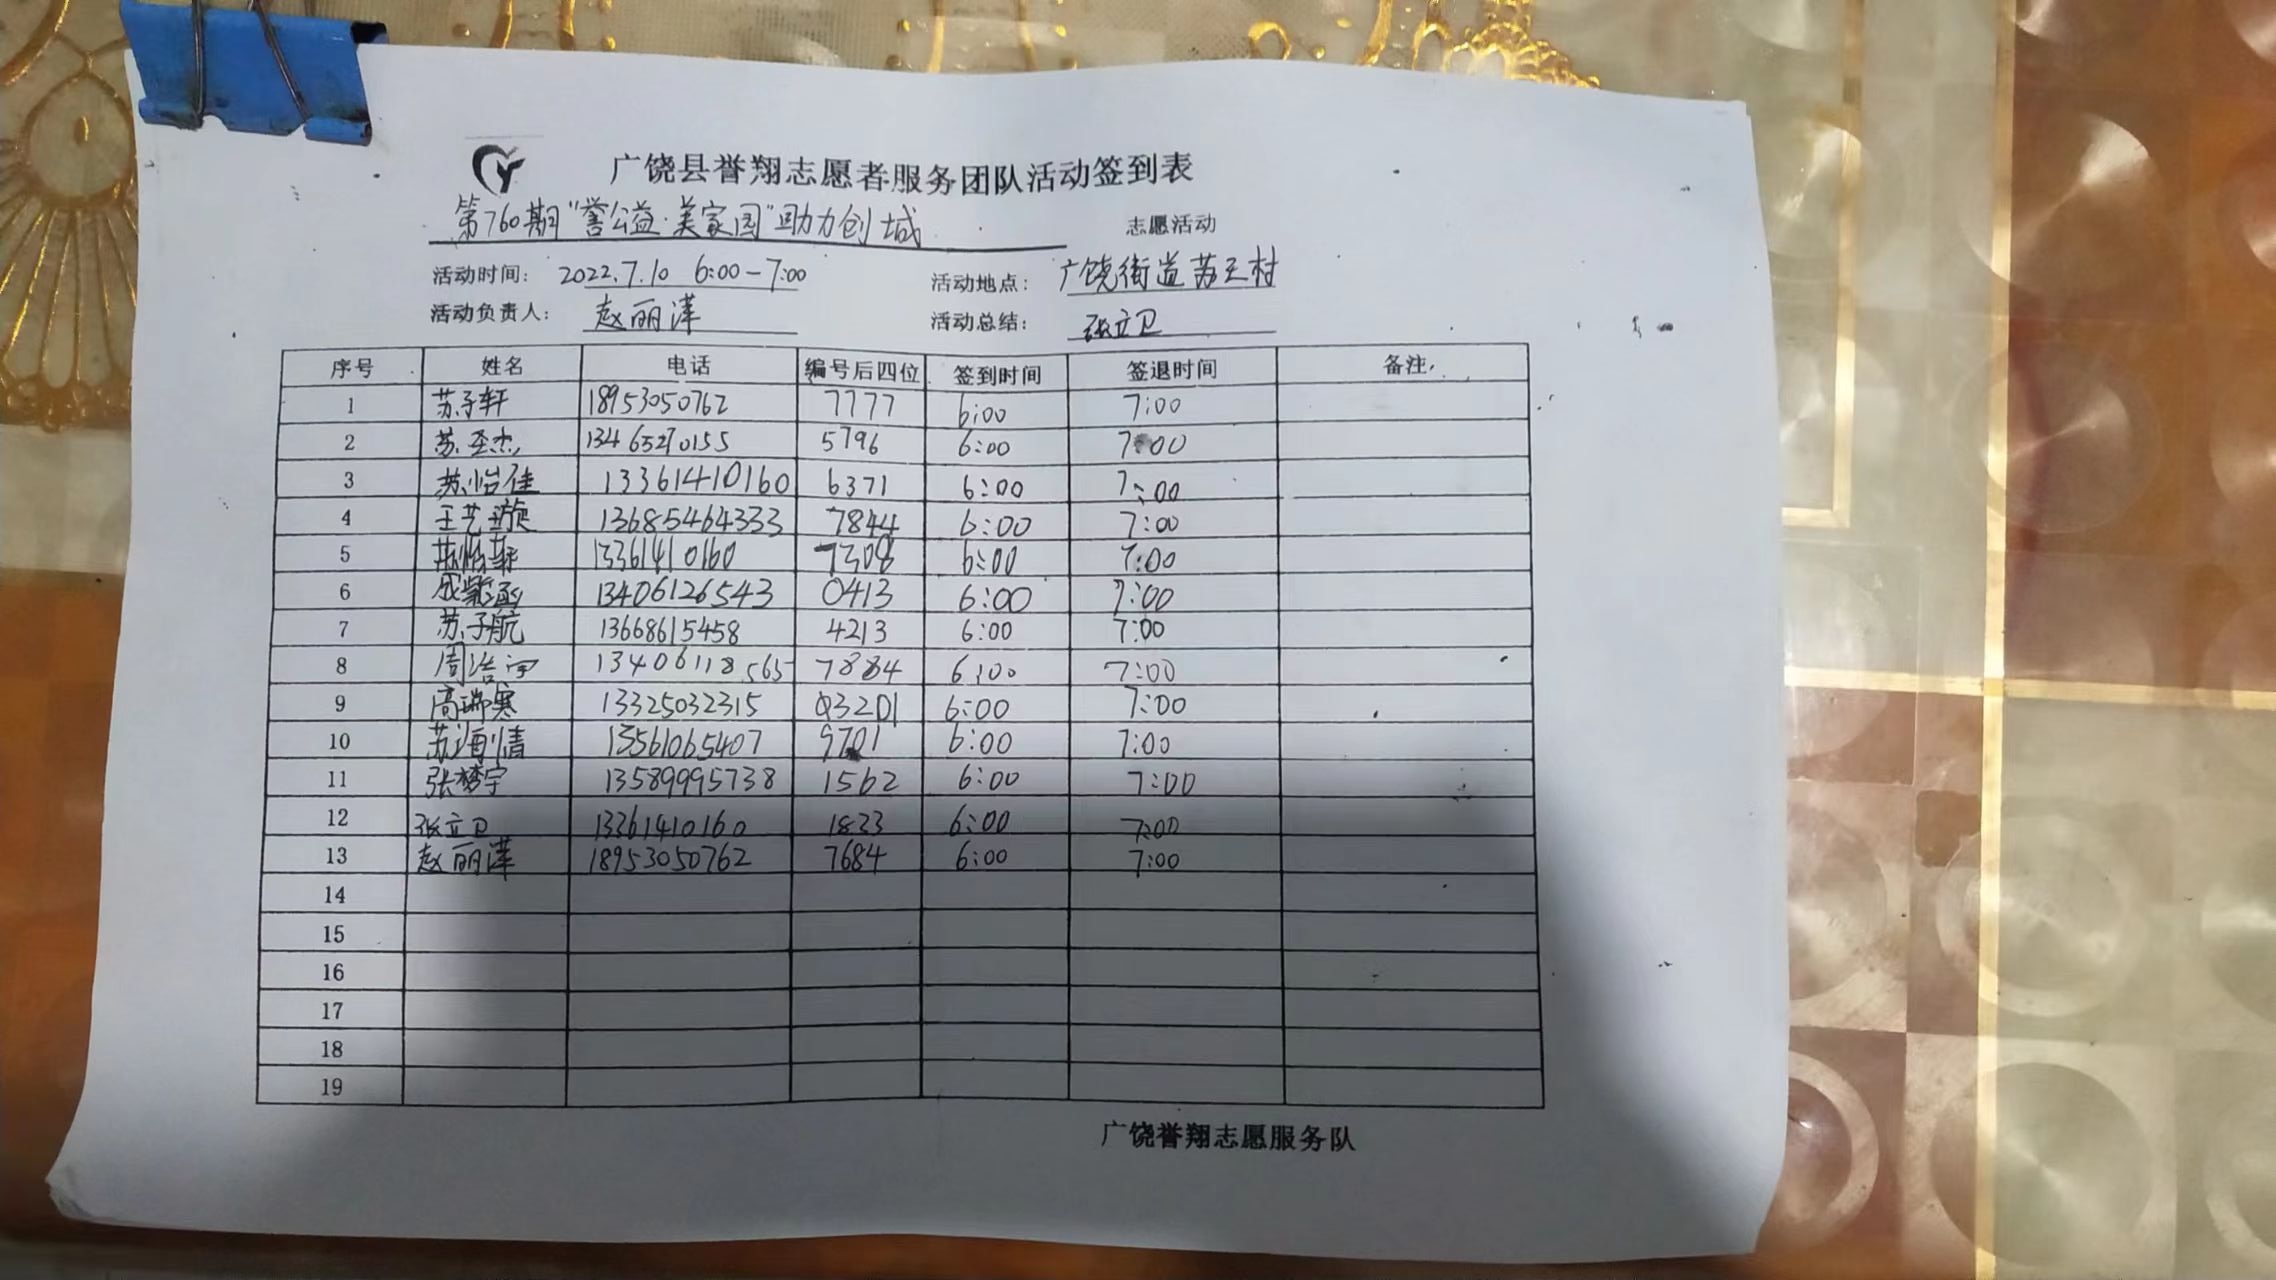 广饶县誉翔志愿者服务团队活动签到表
第760期"誉公益·美家园"助力创城 志愿活动
活动时间: 2022.7.10 6:00-7:00 活动地点: 广饶街道苏王村
活动负责人: 赵丽萍 活动总结: 张立卫
序号 姓名 电话 编号后四位 签到时间 签退时间 备注
1 苏子轩 18953050762 7777 6:00 7:00
2 苏圣杰 13465270155 5796 6:00 7:00
3 苏怡佳 13361410160 6371 6:00 7:00
4 王艺璇 13685464333 7844 6:00 7:00
5 苏怡 13361410160 7308 6:00 7:00
6 成紫涵 13406126543 0413 6:00 7:00
7 苏子航 13668615458 4213 6:00 7:00
8 周浩宇 13406118565 7884 6:00 7:00
9 高瑞寒 13325032315 03201 6:00 7:00
10 苏海情 13561065407 9701 6:00 7:00
11 张梦宇 13589995738 1562 6:00 7:00
12 张立卫 13361410160 1823 6:00 7:00
13 赵丽萍 18953050762 7684 6:00 7:00
14
15
16
17
18
19
广饶誉翔志愿服务队